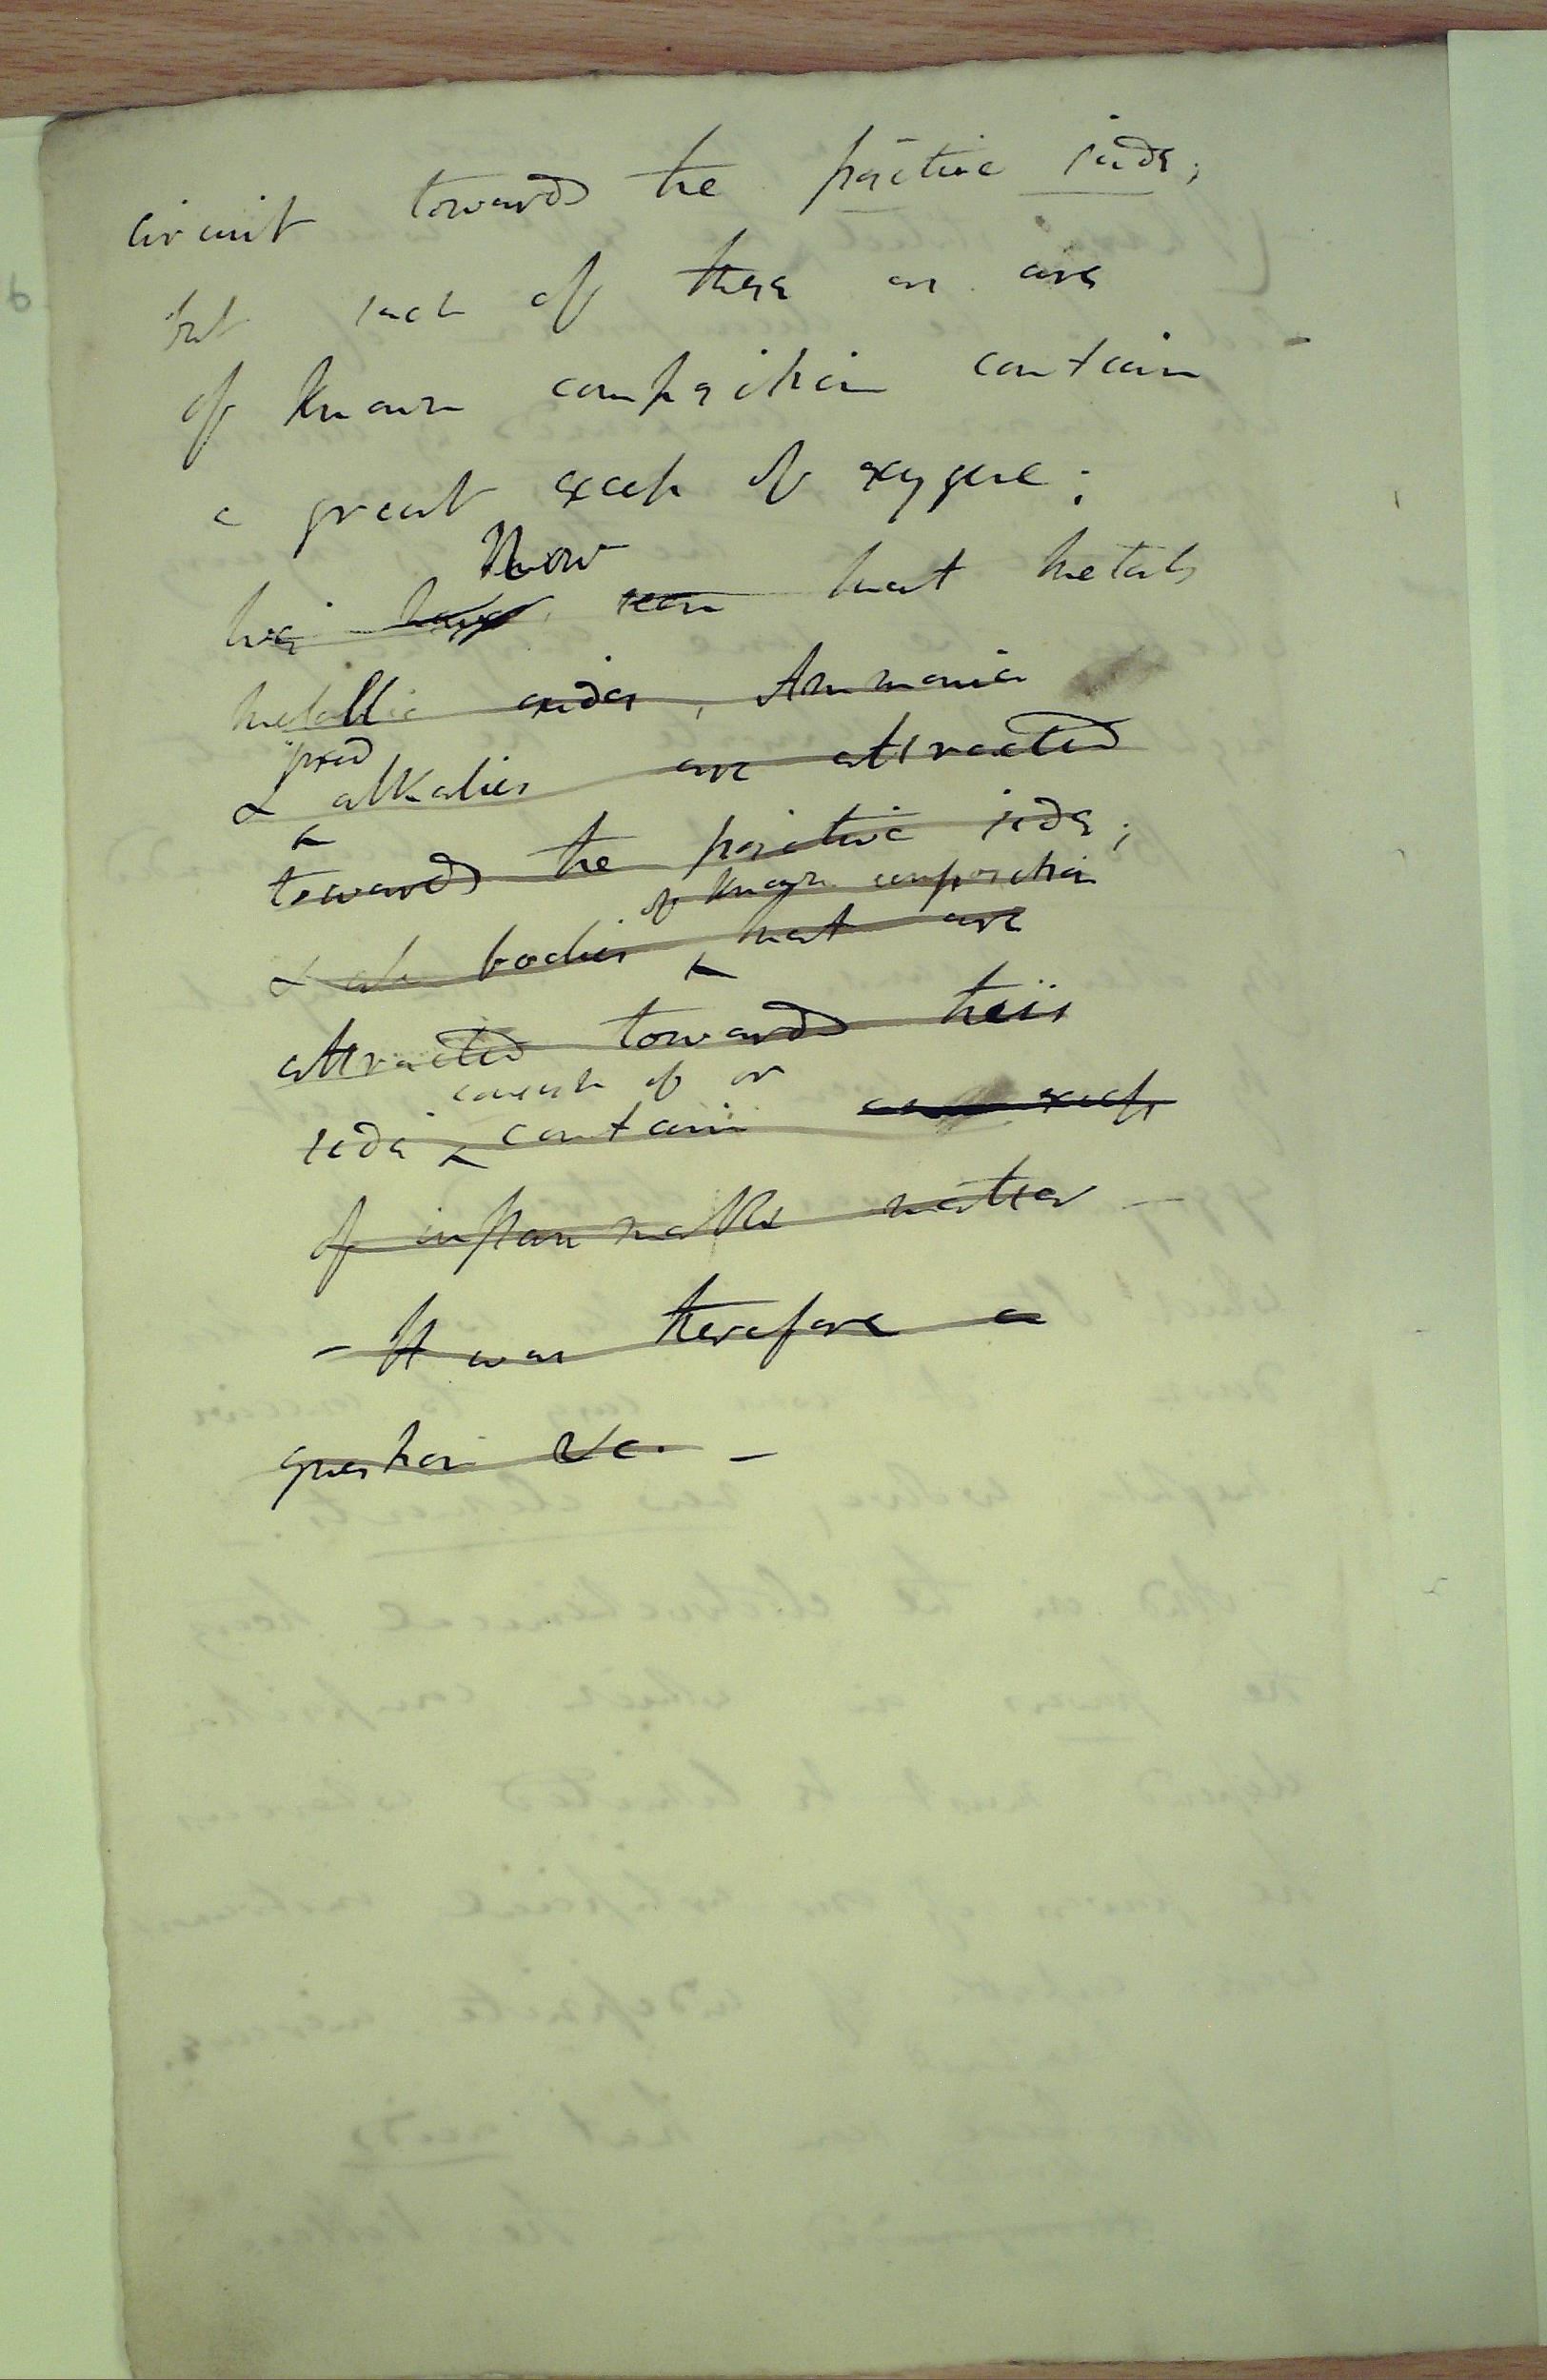 circuit towards the positive side;
but such of these as are
of known composition contain
a great excess of oxygene:
know
We have seen that metals
metallic oxides, Ammonia
fixed
& alkalies are attracted
towards the positive side;
of known composition
& all bodies that are
attracted towards this
consist of or
side contain an excess
of inflammable matter —
— It was therefore a
question &c. —